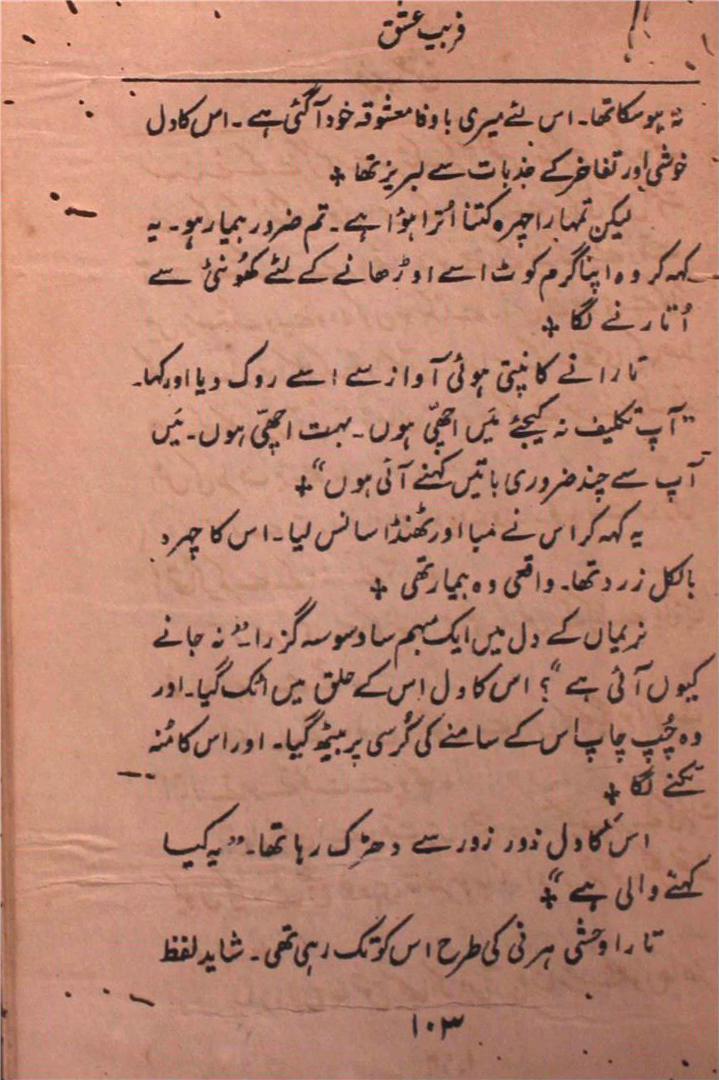 فریب عشق
نہ ہو سکا تھا۔ اس لئے میری باوفا معشوقہ خود آ گئی ہے۔ اس کا دل
خوشی اور تفاخر کے جذبات سے لبریز تھا ٭
لیکن تمہارا چہرہ کتنا اُترا ہؤا ہے۔ تم ضرور بیمار ہو۔ یہ
کہہ کر وہ اپنا گرم کوٹ اسے اوڑھانے کے لئے کھُونٹی سے
اُتارنے لگا ٭
تارا نے کانپتی ہوئی آواز سے اسے روک دیا اور کہا۔
”آپ تکلیف نہ کیجئے مَیں اچھّی ہوں۔ بہت اچھّی ہوں۔ مَیں
آپ سے چند ضروری باتیں کہنے آئی ہوں“ ٭
یہ کہہ کر اس نے لمبا اور ٹھنڈا سانس لیا۔ اس کا چہرہ
بالکل زرد تھا۔ واقعی وہ بیمار تھی ٭
نریمان کے دل میں ایک مبہم سا وسوسہ گزرا۔ ”نہ جانے
کیوں آئی ہے“؟ اس کا دل اِس کے حلق میں اٹک گیا۔ اور
وہ چُپ چاپ اُس کے سامنے کی کُرسی پر بیٹھ گیا۔ اور اس کا مُنہ
تکنے لگا ٭
اس کا دل زور زور سے دھڑک رہا تھا۔ ”یہ کیا
کہنے والی ہے“ ٭
تارا وحشی ہرنی کی طرح اس کو تک رہی تھی۔ شاید لفظ
۱۰۳